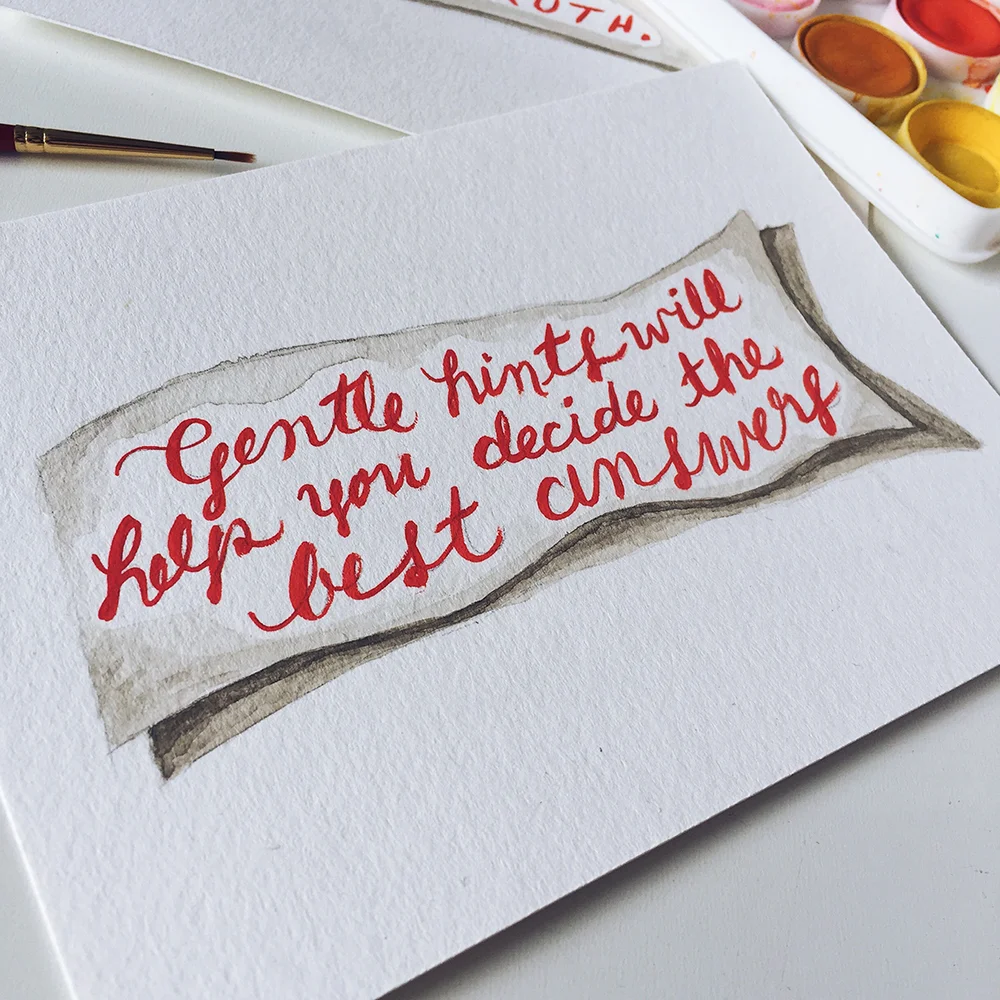 Gentle hints will
help you decide the
best answers